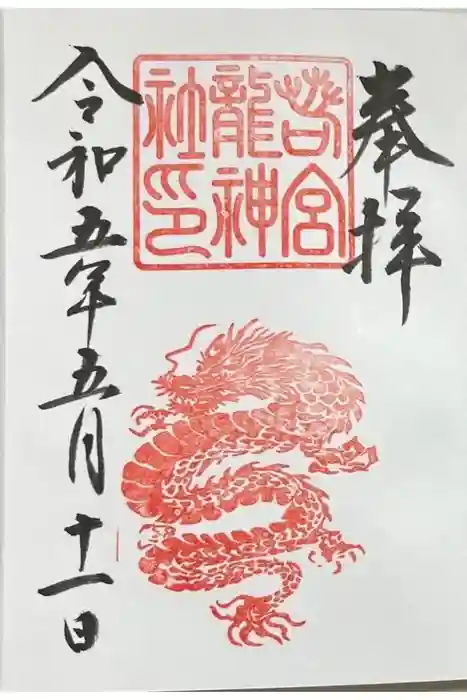 奉拝
若宮
龍神
社印
令和五年五月十一日